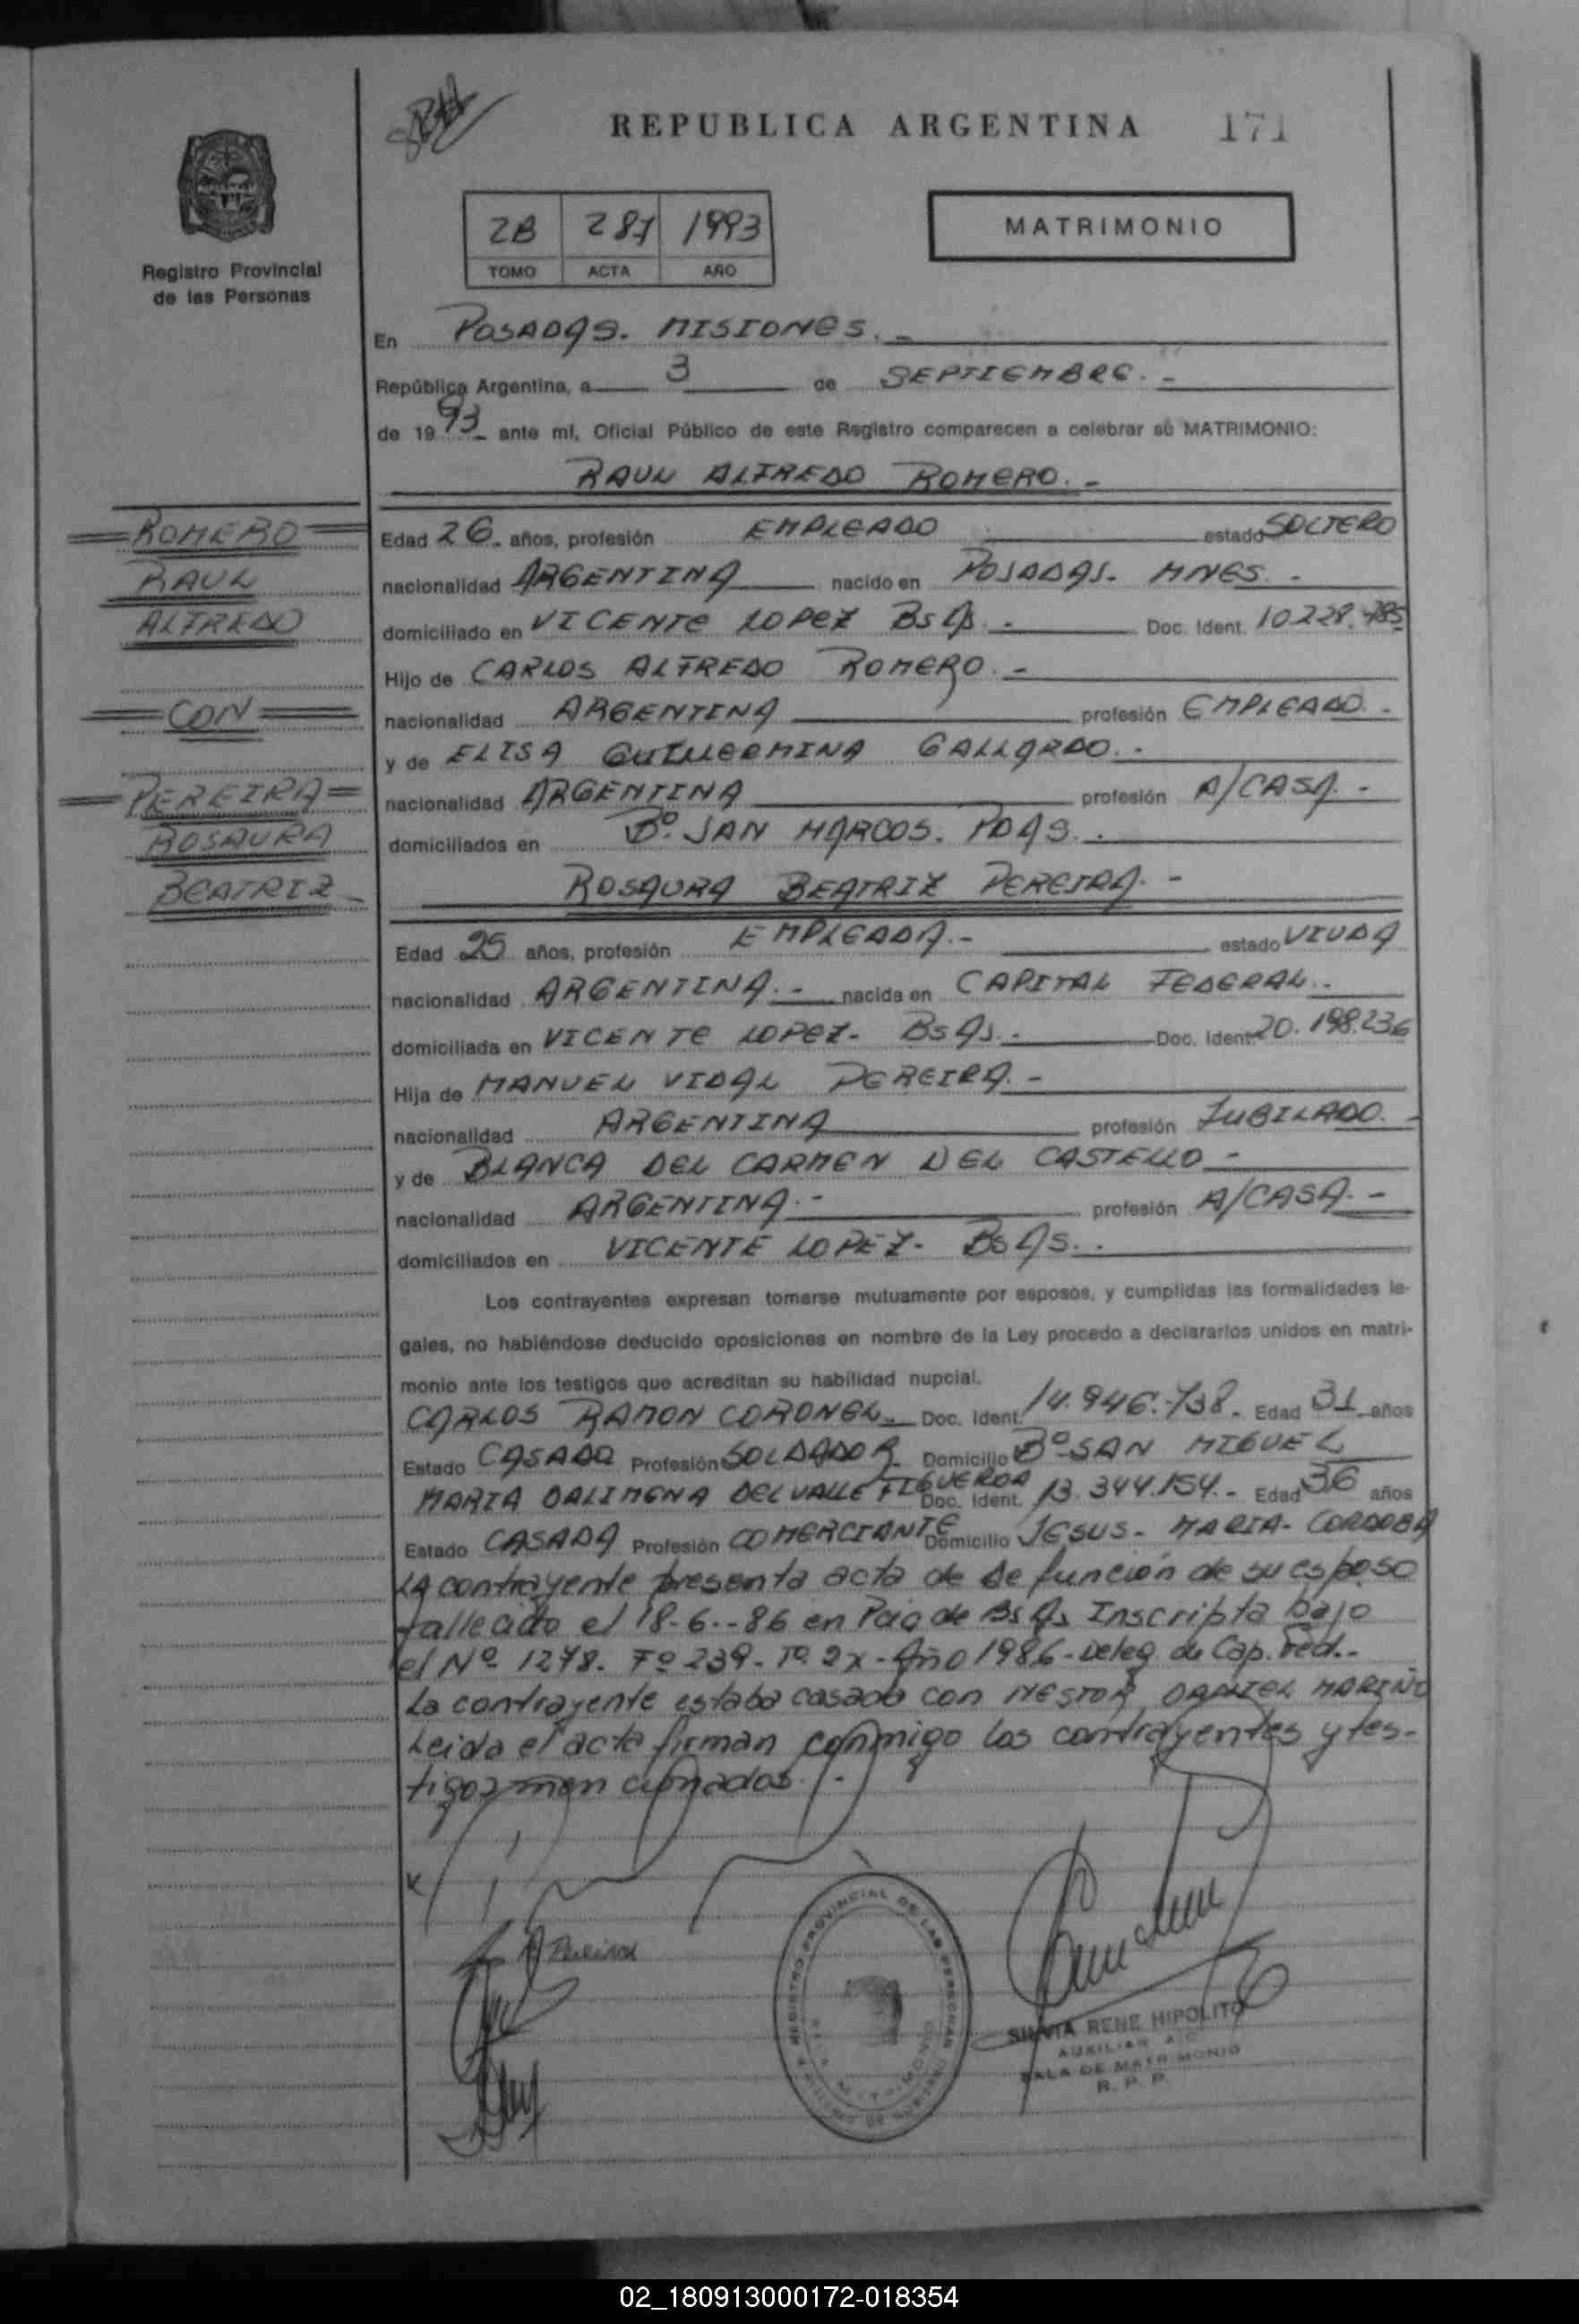 REPUBLICA ARGENTINA 171
Registro Provincial
de las Personas
2B 281 1993
TOMO ACTA AÑO
MATRIMONIO
En POSADAS. MISIONES.-
República Argentina, a 3 de SEPTIEMBRE.-
de 1993 ante mí, Oficial Público de este Registro comparecen a celebrar su MATRIMONIO:
RAUL ALFREDO ROMERO.-
ROMERO
RAUL
ALFREDO
CON
PEREIRA
ROSAURA
BEATRIZ
Edad 26. años, profesión EMPLEADO estado SOLTERO
nacionalidad ARGENTINA nacido en POSADAS- MNES.-
domiciliado en VICENTE LOPEZ Bs As.- Doc. Ident. 10.228.785
Hijo de CARLOS ALFREDO ROMERO.-
nacionalidad ARGENTINA profesión EMPLEADO.-
y de ELISA GUILLERMINA GALLARDO.-
nacionalidad ARGENTINA profesión A/CASA.-
domiciliados en Bº. SAN MARCOS. PDAS.-
ROSAURA BEATRIZ PEREIRA.-
Edad 25 años, profesión EMPLEADA.- estado VIUDA
nacionalidad ARGENTINA.- nacida en CAPITAL FEDERAL.-
domiciliada en VICENTE LOPEZ- Bs As.- Doc. Ident. 20.198.236
Hija de MANUEL VIDAL PEREIRA.-
nacionalidad ARGENTINA profesión JUBILADO.-
y de BLANCA DEL CARMEN DEL CASTELLO-
nacionalidad ARGENTINA.- profesión A/CASA.-
domiciliados en VICENTE LOPEZ- Bs As.-
Los contrayentes expresan tomarse mutuamente por esposos, y cumplidas las formalidades le-
gales, no habiéndose deducido oposiciones en nombre de la Ley procedo a declararlos unidos en matri-
monio ante los testigos que acreditan su habilidad nupcial.
CARLOS RAMON CORONEL Doc. Ident. 14.946.738.- Edad 31 años
Estado CASADO Profesión SOLDADOR Domicilio Bº SAN MIGUEL
MARIA DALIMENA DEL VALLE FIGUEROA Doc. Ident. 13.344.154.- Edad 36 años
Estado CASADA Profesión COMERCIANTE Domicilio JESUS- MARIA- CORDOBA
LA contrayente presenta acta de defunción de su esposo
fallecido el 18-6.-86 en Pcia de Bs As Inscripta bajo
el Nº 1278. Fº 239- Tº 2x- Año 1986- Deleg de Cap. Fed.-
La contrayente estaba casada con NESTOR DANIEL MARINO
Leida el acta firman conmigo los contrayentes y tes-
tigos mencionados.-
Pereira
REGISTRO PROVINCIAL DE LAS PERSONAS
SILVIA RENE HIPOLITO
AUXILIAR
SALA DE MATRIMONIO
R. P. P.
02_180913000172-018354